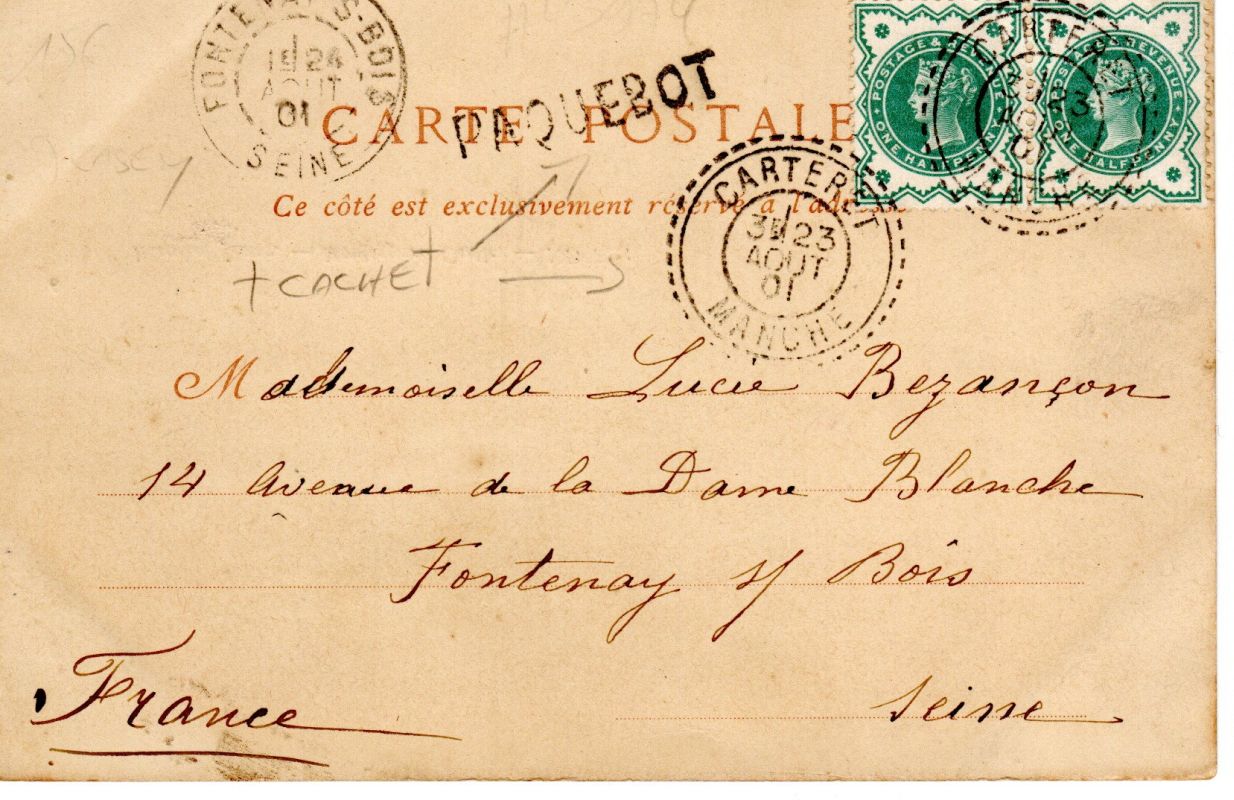 FONTENAY-S-BOIS
1E 24
AOUT
01
SEINE
PAQUEBOT
CARTE POSTALE
Ce côté est exclusivement réservé à l'adresse
POSTAGE & REVENUE
ONE HALFPENNY
POSTAGE & REVENUE
ONE HALFPENNY
CARTERET
AOUT
01
MANCHE
CARTERET
3E 23
AOUT
01
MANCHE
+ CACHET
Mademoiselle Lucie Bezançon
14 Avenue de la Dame Blanche
Fontenay s/ Bois
Seine
France